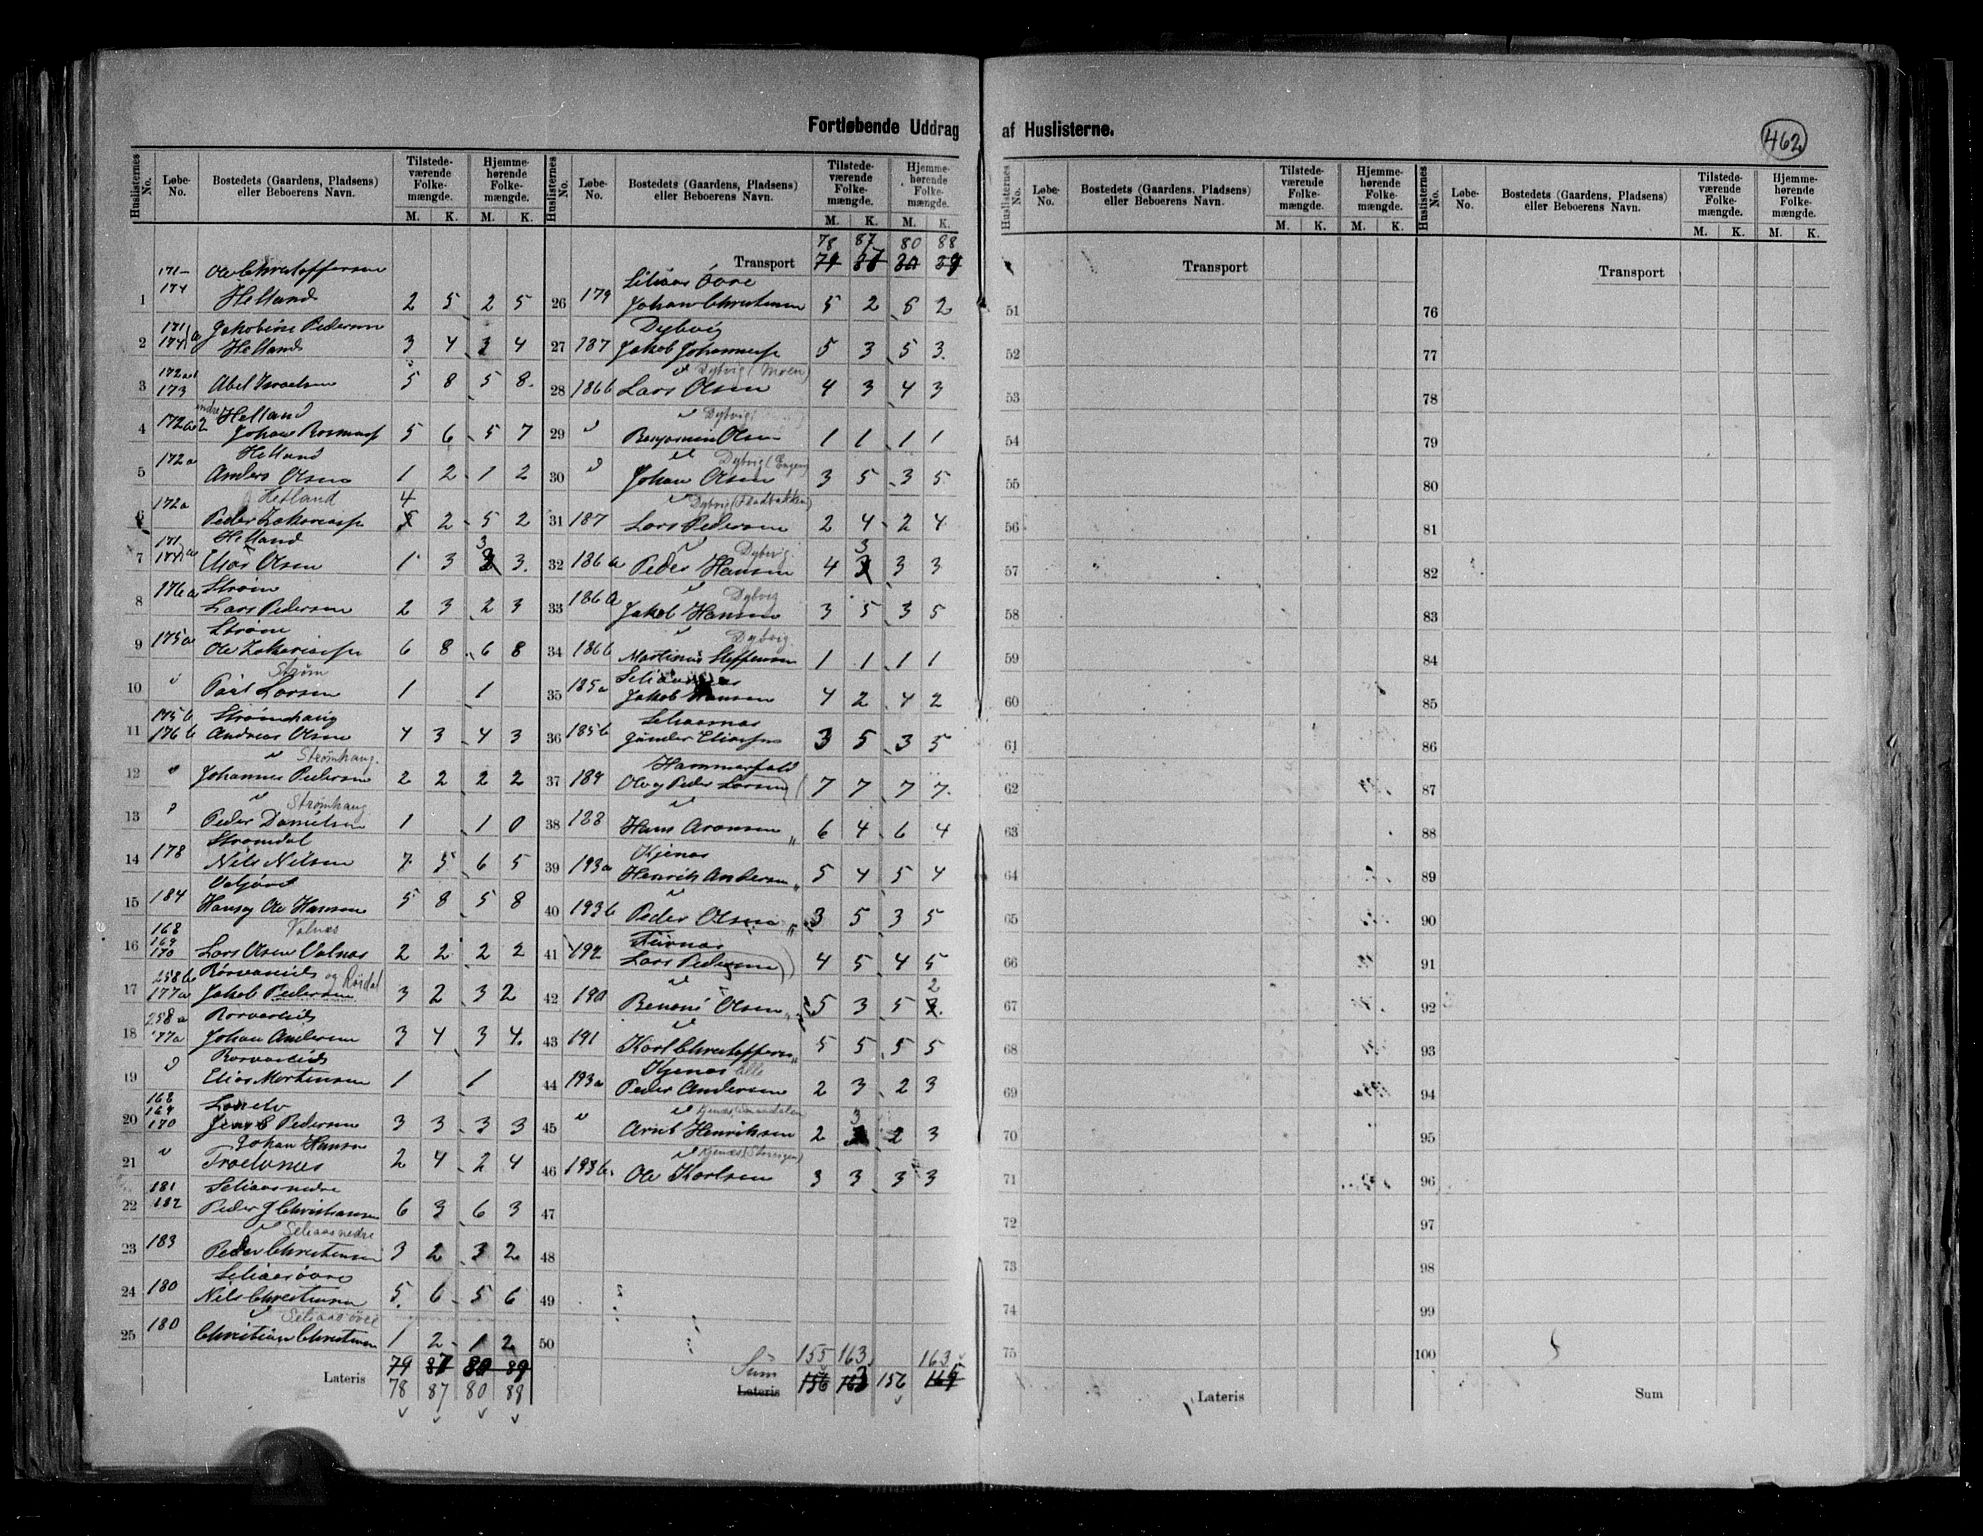 Fortløbende Uddrag af Huslisterne.
462
Huslisternes No. Løbe-No. Bostedets (Gaardens, Pladsens) eller Beboerens Navn. Tilstedeværende Folkemængde. M. K. Hjemmehørende Folkemængde. M. K.
171-174 Ole Christoffersen
1 Helland 2 5 2 5
171 174 a Jakobine Pedersen
2 Helland 3 4 3 4
3 172 a 173 Abel Israelsen 5 8 5 8.
Helland
4 172 Johan 5 6 5 7
Helland
5 172a Anders Olsen 1 2 1 2
Helland 4
6 172a Peder Zakariasen 5 2 5 2
Helland 3
7 171 174 a Olsen 1 3 3.
Strøm
8 176a Lars Pedersen 2 3 2 3
Strøm
9 175a Ole Zakariassen 6 8 6 8
Strøm
10 " Larsen 1 1
Strømhaug
11 175 b 176 b Andreas Olsen 4 3 4 3
" Strømhaug.
12 " Johannes Pedersen 2 2 2 2
" Strømhaug
13 " Peder Danielsen 1 1 0
Strømdal
14 178 Nils Nilsen 7. 5 6 5
15 184 Hans og Ole Hansen 5 8 5 8
Valnæs
16 168 169 170 Lars Olsen Valnæs 2 2 2 2
Rørvareid og Røsdal
17 258 b 177a Jakob Pedersen 3 2 3 2
Rørvareid
18 258 a 177a Johan Andersen 3 4 3 4.
Rorvareid
19 " Elias Mortensen 1 1
20 168 169 170 Pedersen 3 3 3 3
Johan Hansen
21 " 2 4 2 4
Seliaas nedre
22 181 182 Peder J Christiansen 6 3 6 3
" Seliaas nedre
23 183 Peder Christensen 3 2 3 2
Seliaas øvre
24 180 Nils Christensen 5 6 5 6
" Seliaas øvre
25 180 Christian Christensen 1 2 1 2
79 87 80 89
Lateris 78 87 80 88
78 87 80 88
Transport 79 87 80 89
Seliaas Övre
26 179 Johan Christensen 5 2 5 2
Dybvig
27 187 Jakob Johannesen 5 3 5 3.
" Dybvig (Moen)
28 186b Lars Olsen 4 3 4 3
" Dybvig
29 " Benjamin Olsen 1 1 1 1
" Dybvig (Engen)
30 " Johan Olsen 3 5 3 5
" Dybvig (Fladbakken)
31 187 Lars Pedersen 2 4 2 4
" Dybvig. 3
32 186a Peder Hansen 4 3 3
" Dybvig
33 186a Jakob Hansen 3 5 3 5
" Dybvig
34 186b Martinus Steffensen 1 1 1 1
35 185a Jakob Hansen 4 2 4 2
Seliaasnæs
36 185b 3 5 3 5
Hammerfald
37 189 Ole og Peder Larsen 7 7 7 7.
"
38 188 Hans Aronsen " 6 4 6 4
Kjenæs
39 193a Henrik Andersen " 5 4 5 4
"
40 193b Peder Olsen " 3 5 3 5
41 192 Lars Pedersen 4 5 4 5
" 2
42 190 Benoni Olsen " 5 3 5
"
43 191 Karl Christoffersen " 5 5 5 5
Kjenæs
44 193a Peder Andersen 2 3 2 3
" 3
45 " Arnt Henriksen 2 2 3
" Kjenæs (Storengen)
46 193b. Ole Karlsen 3 3 3 3
47
48
49
50
155 163 163
Sum
Lateris 156 163 156 165
Huslisternes No. Løbe-No. Bostedets (Gaardens, Pladsens) eller Beboerens Navn. Tilstedeværende Folkemængde. M. K. Hjemmehørende Folkemængde. M. K.
Transport
51
52
53
54
55
56
57
58
59
60
61
62
63
64
65
66
67
68
69
70
71
72
73
74
75
Lateris
Transport
76
77
78
79
80
81
82
83
84
85
86
87
88
89
90
91
92
93
94
95
96
97
98
99
100
Sum